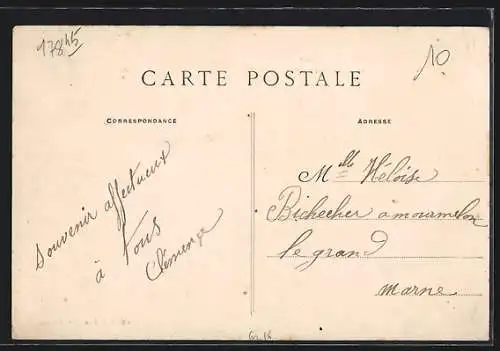 17845
10
CARTE POSTALE
CORRESPONDANCE
ADRESSE
Souvenir affectueux
à Tous
Clémence
Mlle Héloïse
Bichecher à mourmelon
le grand
marne